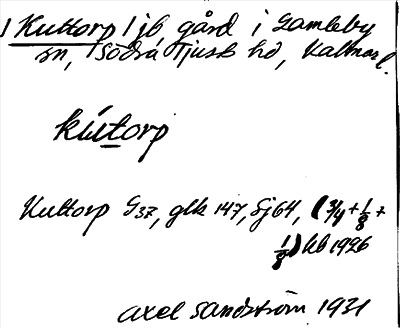 1 Kuttorp 1 jb gård i Gamleby
sn, Södra Tjust hd, Kalmar l.
kútorp
Kuttorp G37, glk 147, Sj64, (3/4 + 1/8 +
1/8) kb 1926
Axel Sandström 1931